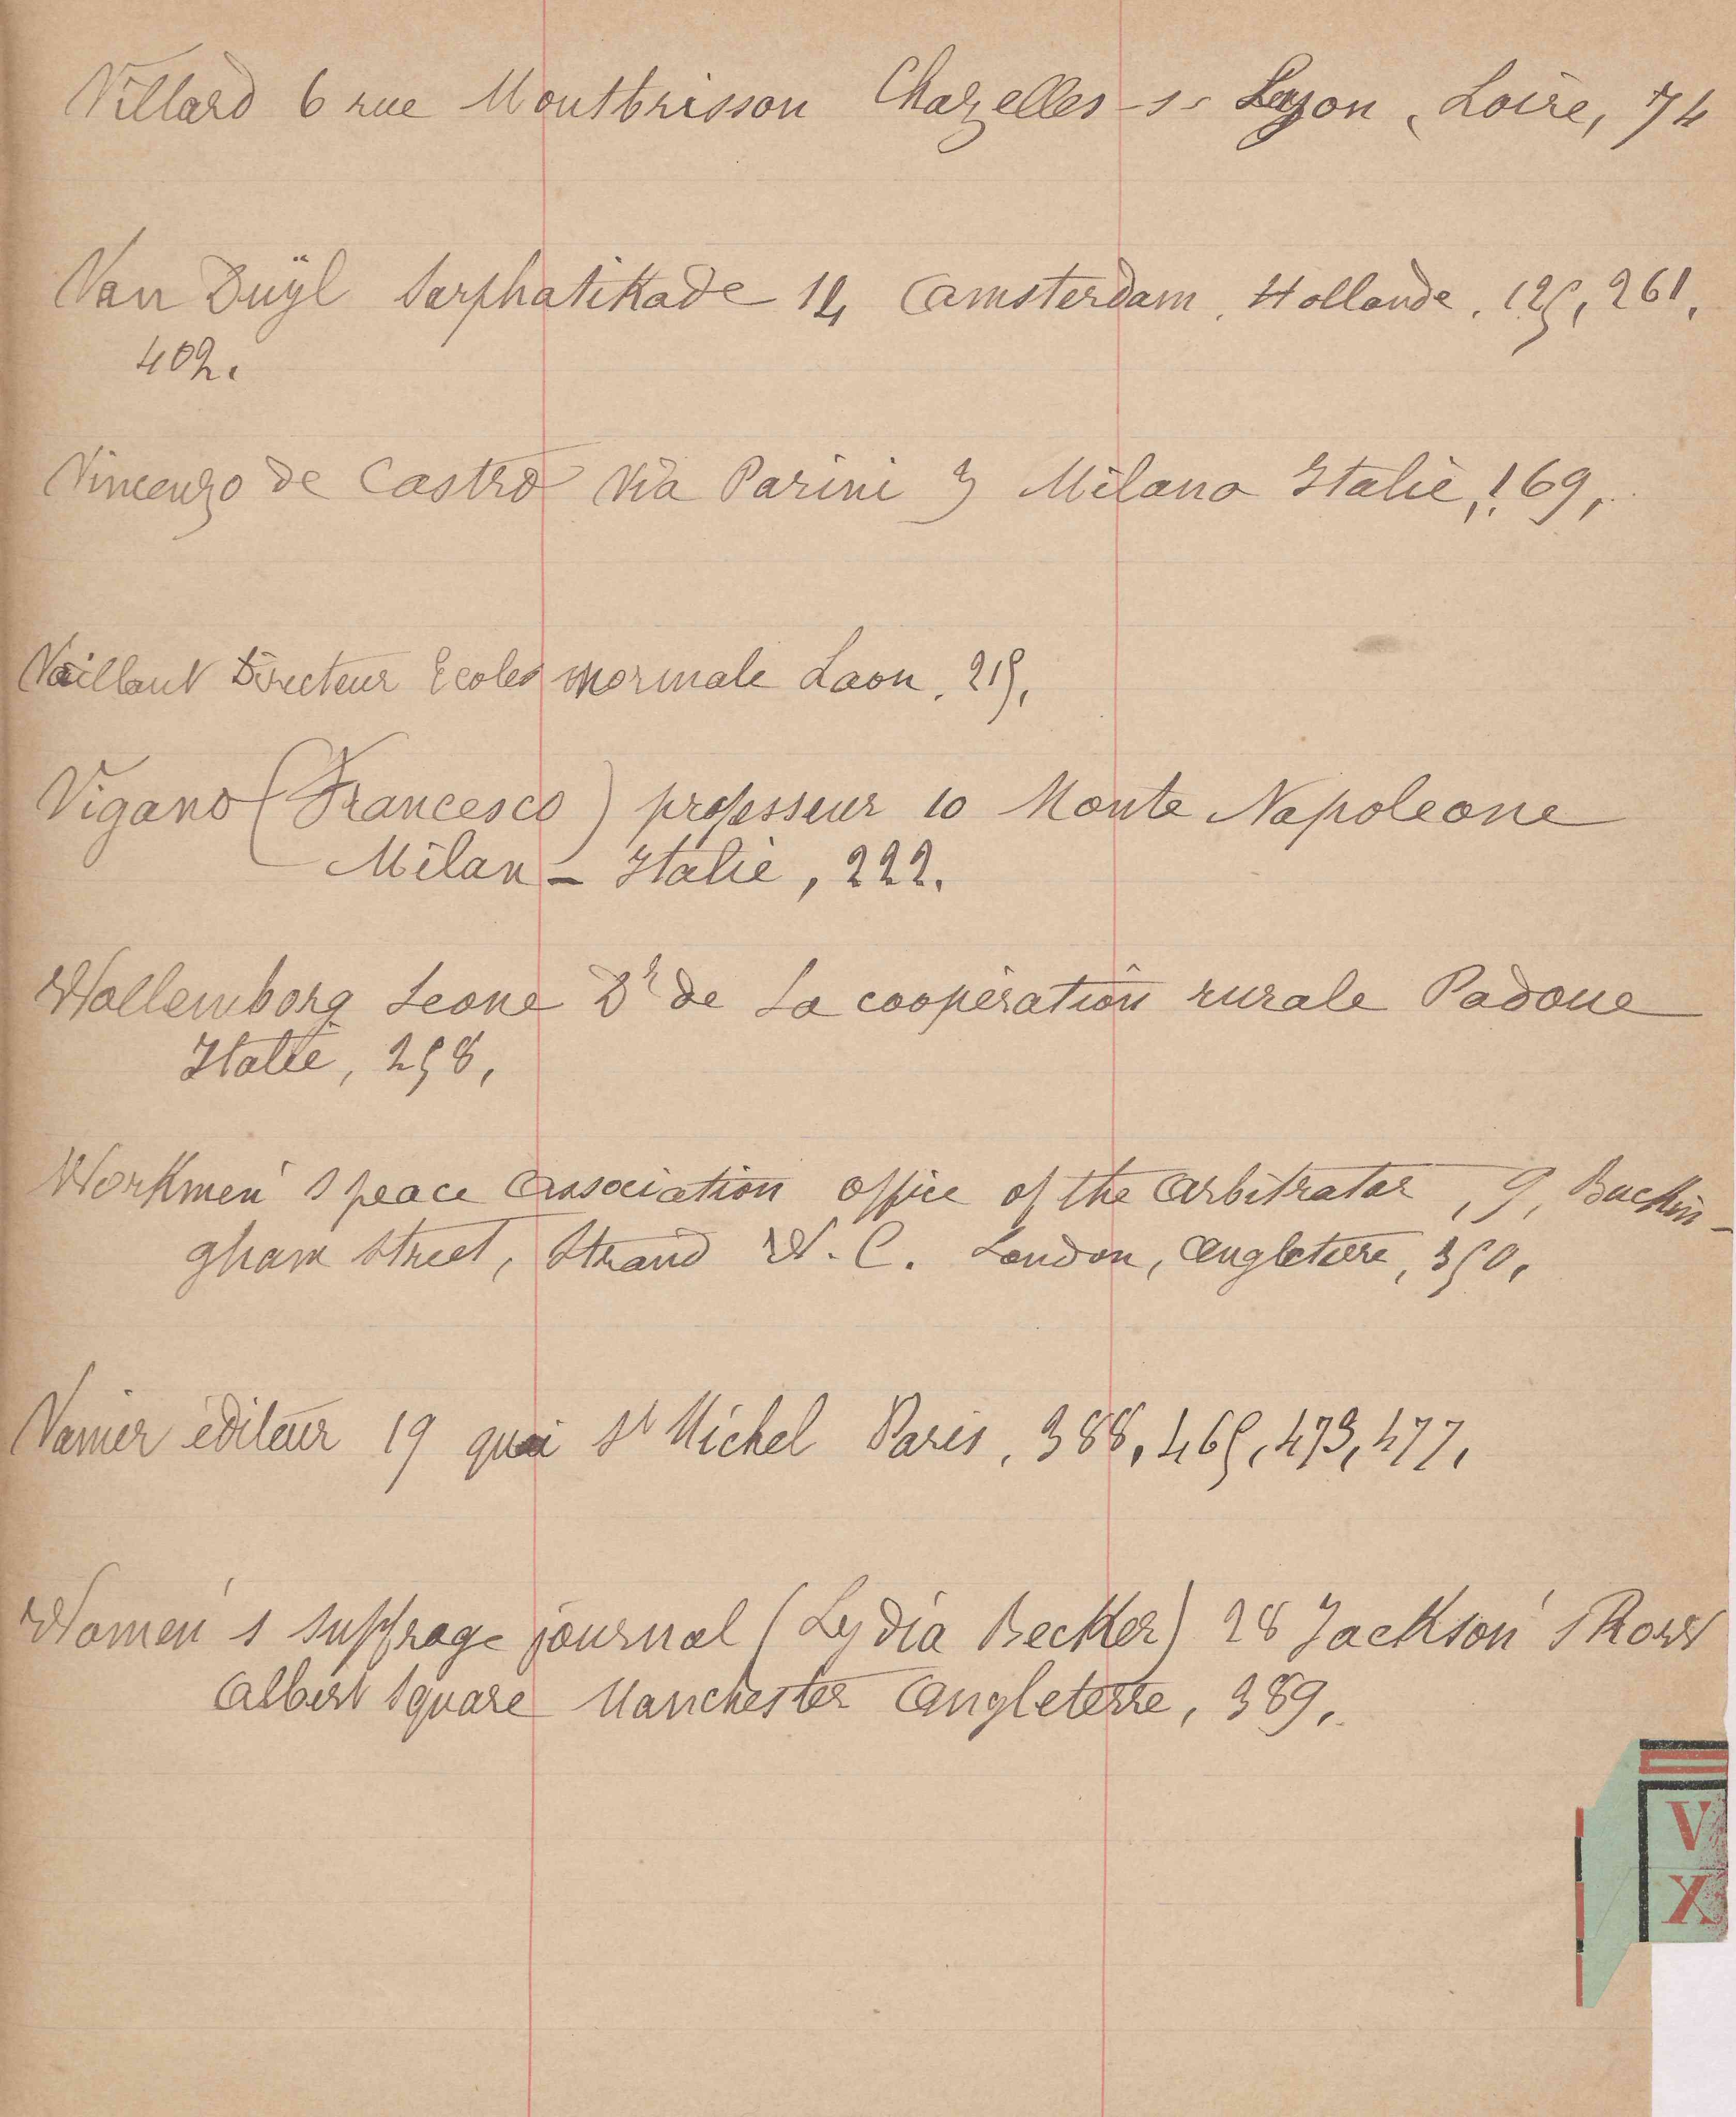 Villard 6 rue Montbrisson Chazelles-s- Lyon, Loire, 74
Van Duÿl Sarphatikade 12, Amsterdam, Hollande, 125, 261,
402.
Vincenzo de Castro Via Parini 3 Milano Italie, 169,
Vaillant Directeur Ecoles normale Laon, 215,
Vigano (Francesco) professeur 10 Monte Napoleone
Milan - Italie, 222,
Wollemborg Leone Dr de La coopération rurale Padoue
Italie, 258,
Workmen's peace Association office of the Arbitrator, 9, Buckin-
gham Street, Strand W. C. London, Angleterre, 350,
Vanier éditeur 19 quai St Michel Paris, 388, 465, 473, 477,
Women's suffrage journal (Lydia Becker) 28 Jackson's Row
Albert Square Manchester Angleterre, 389,
V
X